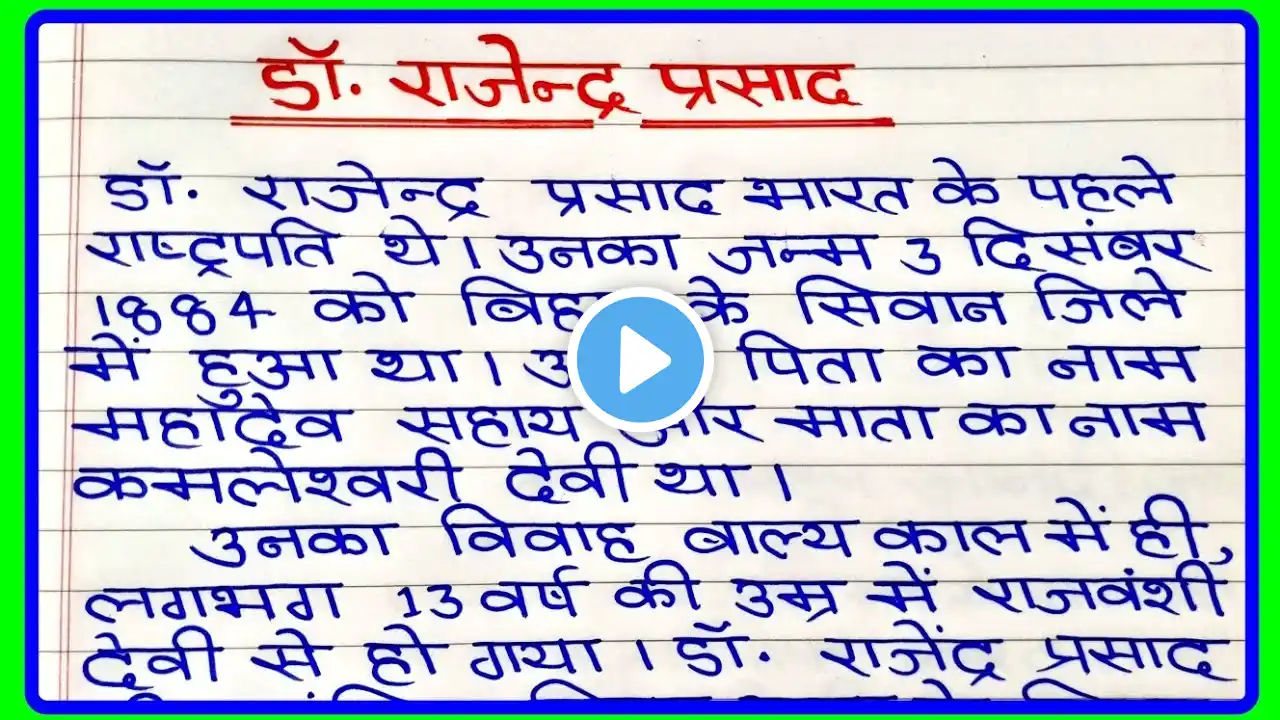 डॉ. राजेन्द्र प्रसाद
डॉ. राजेन्द्र प्रसाद भारत के पहले
राष्ट्रपति थे। उनका जन्म 3 दिसंबर
1884 को के सिवान जिले
में हुआ था। पिता का नाम
महादेव सहाय और माता का नाम
कमलेश्वरी देवी था।
उनका विवाह बाल्य काल में ही,
लगभग 13 वर्ष की उम्र में राजवंशी
देवी से हो गया। डॉ. राजेंद्र प्रसाद